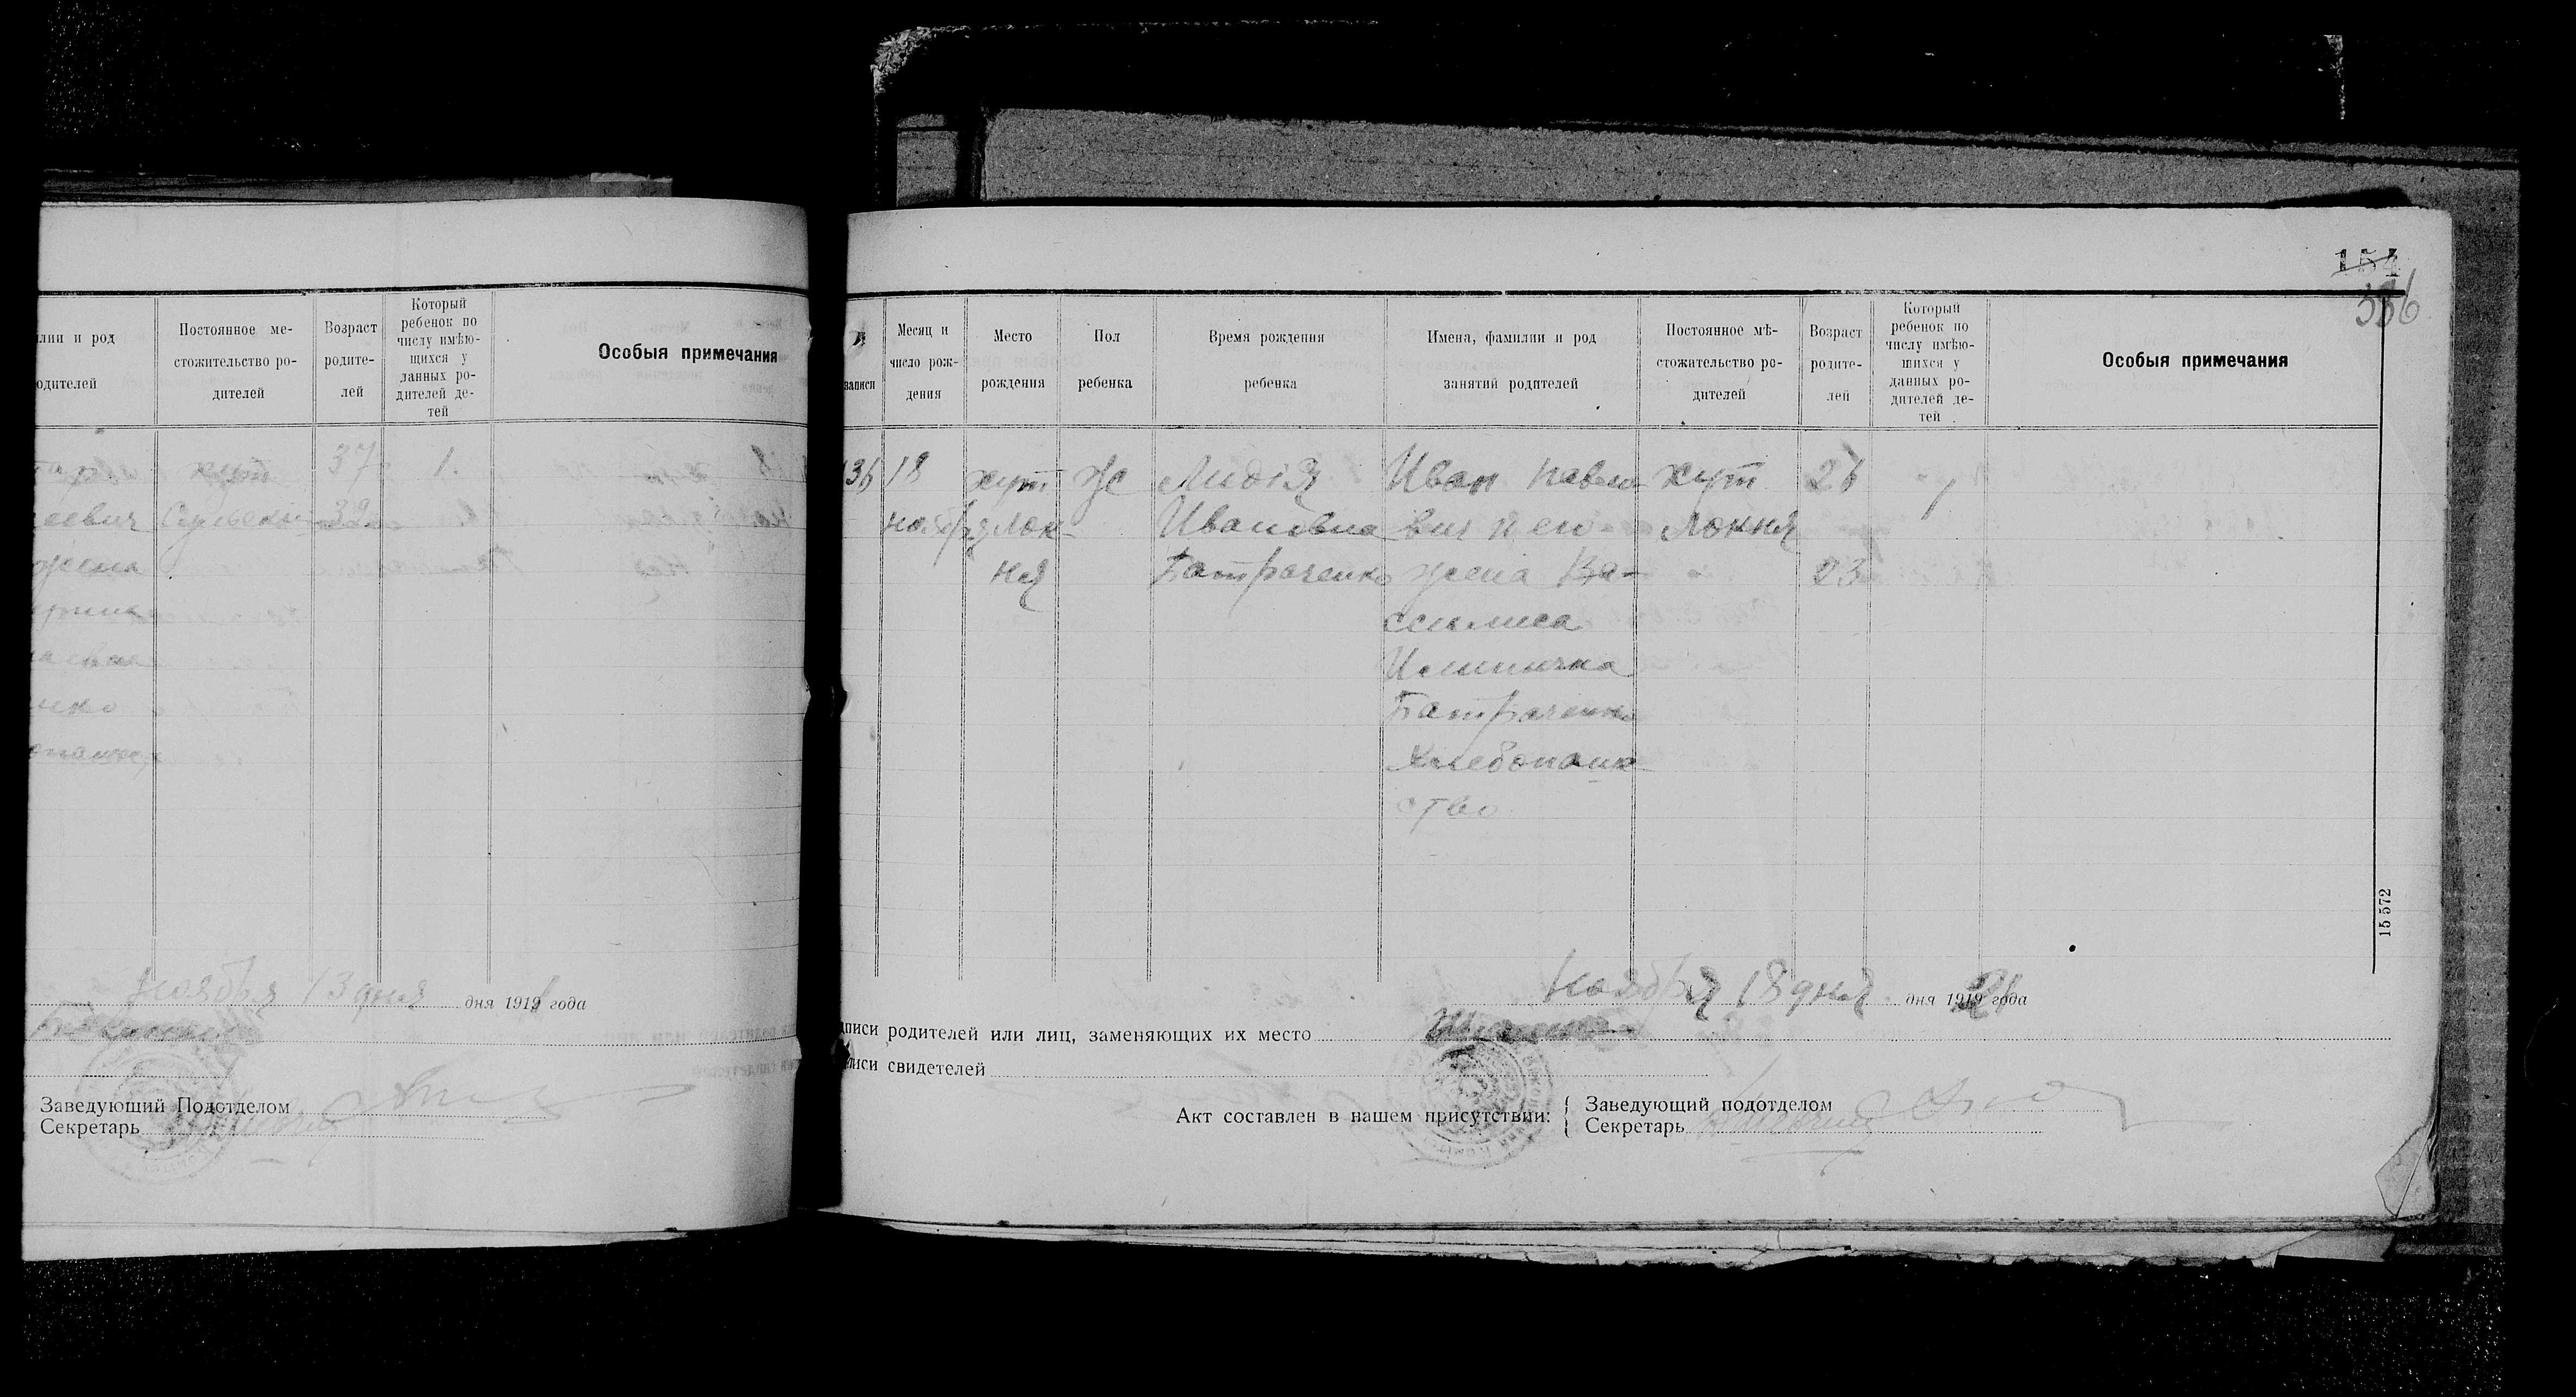 154
336
лии и род
одителей
Постоянное ме-
стожительство ро-
дителей
Возраст
родите-
лей
Который
ребенок по
числу имѣю-
щихся у
данных ро-
дителей де-
тей
Особыя примечания
хут
37
1.
евич
32
жена
нко
Ноября 13 дня дня 1919 года
Заведующий Подотделом
Секретарь
записи
Месяц и
число рож-
дения
Место
рождения
Пол
ребенка
Время рождения
ребенка
Имена, фамилии и род
занятий родителей
Постоянное мѣ-
стожительство ро-
дителей
Возраст
родите-
лей
Который
ребенок по
числу имѣю-
щихся у
данных ро-
дителей де-
тей
Особыя примечания
136 18 хут Же Лидія Иван Павло хут 26 1
ноября Лок- Ивановна вич и его Локня
ня Батраченко жена Ва- 23
ссилиса
Илинична
Батраченко
Хлебопаш
ство
15 572
Ноября 18 дня дня 1919 21 года
писи родителей или лиц, заменяющих их место
писи свидетелей
Акт составлен в нашем присутствии:
Заведующий подотделом
Секретарь